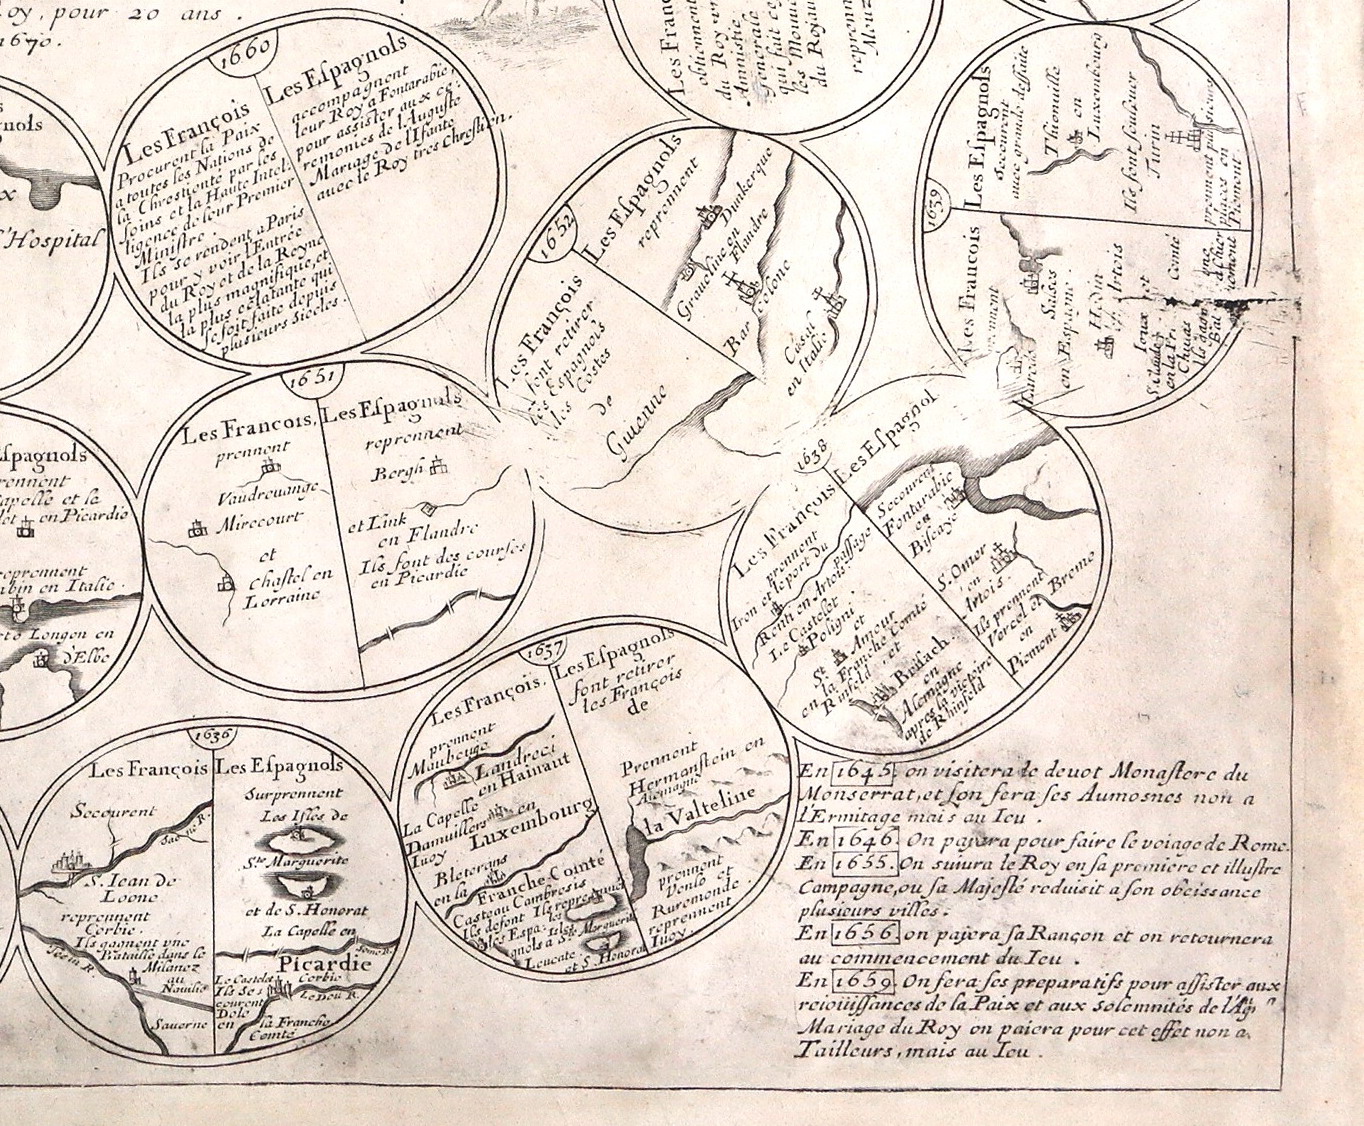 oy, pour 20 ans.
1670.
nols
x
l'Hospital
1660
Les François
Procurent la Paix
a toutes les Nations de
la Chrestienté par les
soins et la Haute Intel
ligence de leur Premier
Ministre.
Ils se rendent a Paris
pour y voir l'Entrée
du Roy et de la Reyne
la plus magnifique, et
la plus éclatante qui
se soit faite depuis
plusieurs Siecles.
Les Espagnols
accompagnent
leur Roy a Fontarabie,
pour assister aux ce
remonies de l'Auguste
Mariage de l'Ifante
avec le Roy tres Chrestien.
Les Franc
obtiennent
du Roy vn
Amnistie
Generale
qui fait ce
les Mouue
du Royau
reprenn
Mouz
1639
Les Espagnols
Secourent
auec grande deffaite
Thionuille
en
Luxembourg
Ils font souleuer
Turin
prennent plusieurs
places en
Piemont.
Les François
Salses
en Espagne.
Hédin
en Artois
Ioux et
St Claude
en la Fr. Comté
1652
Les Espagnols
reprennent
Graueline en
Dunkerque
Flandre
Barcelone
Casal
en Italie
Les François
font retirer
les Espagnols
des Costes
de
Guienne
1651
Les François,
prennent
Vaudreuange
Mirecourt
et
Chastel en
Lorraine
Les Espagnols
reprennent
Bergh
et Link
en Flandre
Ils font des courses
en Picardie
spagnols
rennent
apelle et le
let en Picardie
reprennent
bin en Italie.
rto Longon en
d'Elbe
1638
Les Espagnol
Secourent
Fontarabie
en
Biscaye
S. Omer
en
Artois.
Ils prennent
Vercel et Breme
en
Piemont
Les François
prennent
Iron et le port du passage
Renti en Artois
Le Castelet
Poligni
et
St Amour
en la Franche Comté
Rinfeld et
Brisach
en
Alemagne
apres la victoire
de Rhinfeld
1637
Les François.
prennent
Maubeuge
Landreci
en Hainaut
La Capelle
Damuillers en
Iuoy Luxembourg
Bleterans
en la Franche Comté
Casteau Cambresis
Ils defont
les Espa
gnols a
Leucate
Ils reprennent
les Isles
Ste Marguerite
et S. Honorat
Les Espagnols
font retirer
les François
de
la Valteline
Prennent
Hermanstein en
Alemagne
prennent
Venlo et
Ruremonde
reprennent
Iuoy.
1636
Les François
Secourent
Saone R.
S. Iean de
Loone
reprennent
Corbie.
Ils gagnent vne
Bataille dans le
Milanez
au
Nauilio
Tesin R.
Les Espagnols
Surprennent
Les Isles de
Ste Marguerite
et de S. Honorat
La Capelle en
Picardie
Le Castelet
Corbie
Somme R.
Ils se se
courent
Dole
en la Franche
Comté
Le Dou R.
Sauerne
En 1645. on visitera le deuot Monastere du
Monserrat, et l'on fera ses Aumosnes non a
l'Ermitage mais au Ieu.
En 1646. On paiera pour faire le voiage de Rome.
En 1655. On suiura le Roy en sa premiere et illustre
Campagne, ou sa Majesté reduisit a son obeissance
plusieurs villes.
En 1656. on paiera sa Rançon et on retournera
au commencement du Ieu.
En 1659. On fera ses preparatifs pour assister aux
reioüissances de la Paix et aux solemnités de l'Ag.
Mariage du Roy on paiera pour cet effet non a
Tailleurs, mais au Ieu.